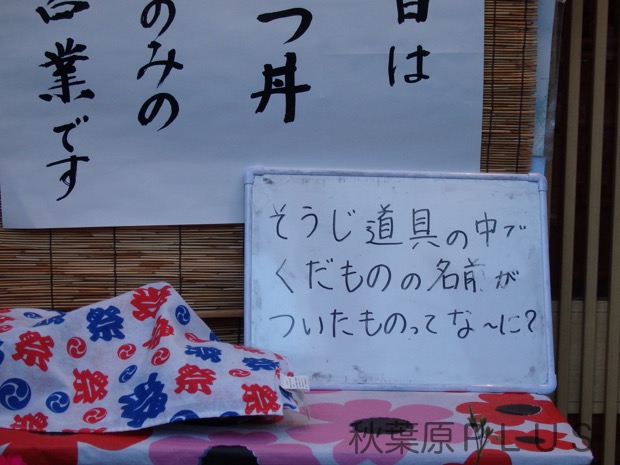 日は
つ丼
のみの
営業です
そうじ道具の中で
くだものの名前が
ついたものってな〜に?
祭
祭
祭
祭
祭
祭
祭
祭
秋葉原PLUS